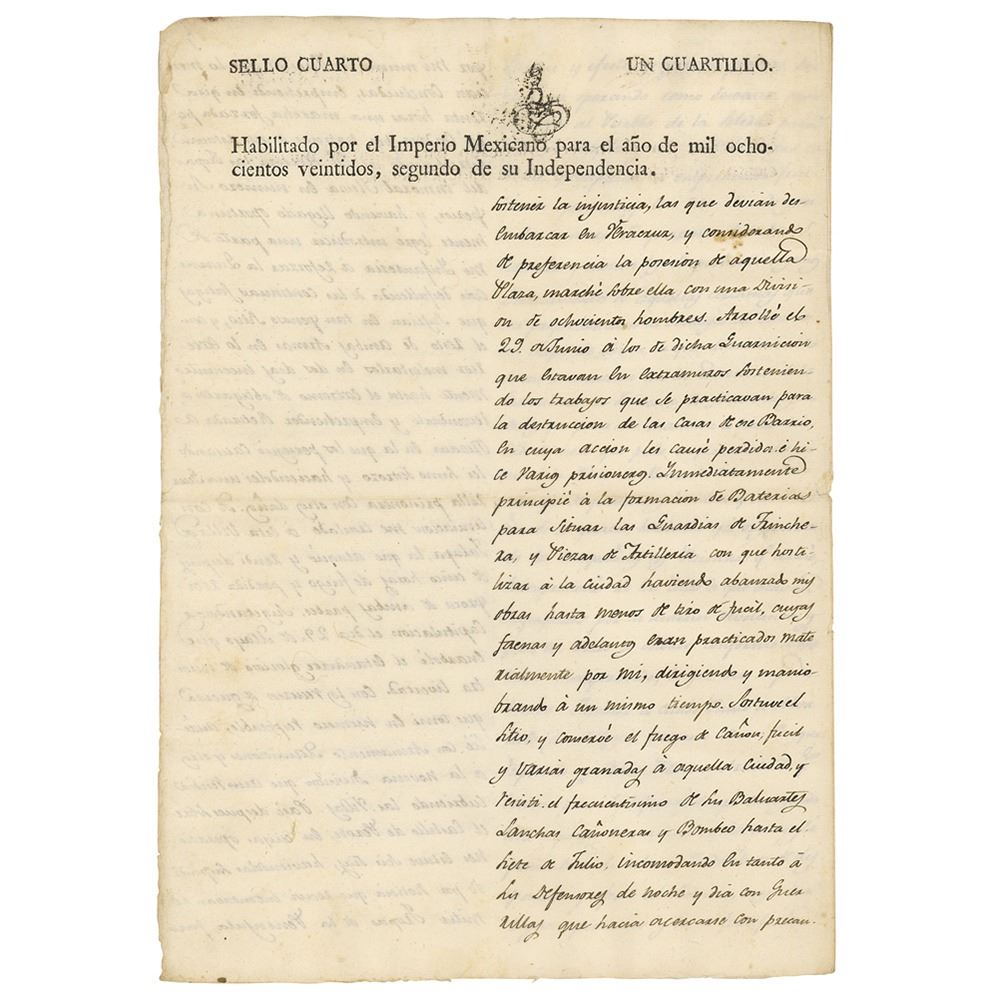 SELLO CUARTO UN CUARTILLO.
Habilitado por el Imperio Mexicano para el año de mil ocho-
cientos veintidos, segundo de su Independencia.
sostener la injusticia, las que devian des-
embarcar en Veracruz, y considerando
de preferencia la posesion de aquella
Plaza, marché sobre ella con una Divisi-
on de ochocientos hombres. Arrollé el
29. de Junio á los de dicha Guarnicion
que estavan en extramuros sostenien-
do los trabajos que se practicavan para
la destruccion de las Casas de ese Barrio,
en cuya accion les causé perdida é hi-
ce varios prisioneros. Inmediatamente
principié á la formacion de Baterias
para situar las Guardias de Trinche-
ra, y Piezas de Artilleria con que hosti-
lizar á la ciudad haviendo abanzado mis
obras hasta menos de tiro de fucil, cuyas
faenas y adelantos eran practicados mate
rialmente por mi, dirigiendo y manio-
brando á un mismo tiempo. Sostuve el
sitio, y conservé el fuego de cañon, fucil
y varias granadas á aquella Ciudad, y
resisti el frecuentisimo de sus Baluartes
Lanchas Cañoneras y Bombeo hasta el
siete de Julio, incomodando en tanto á
sus Defensores de noche y dia con Guer
rillas que hacia acercarse con precau-